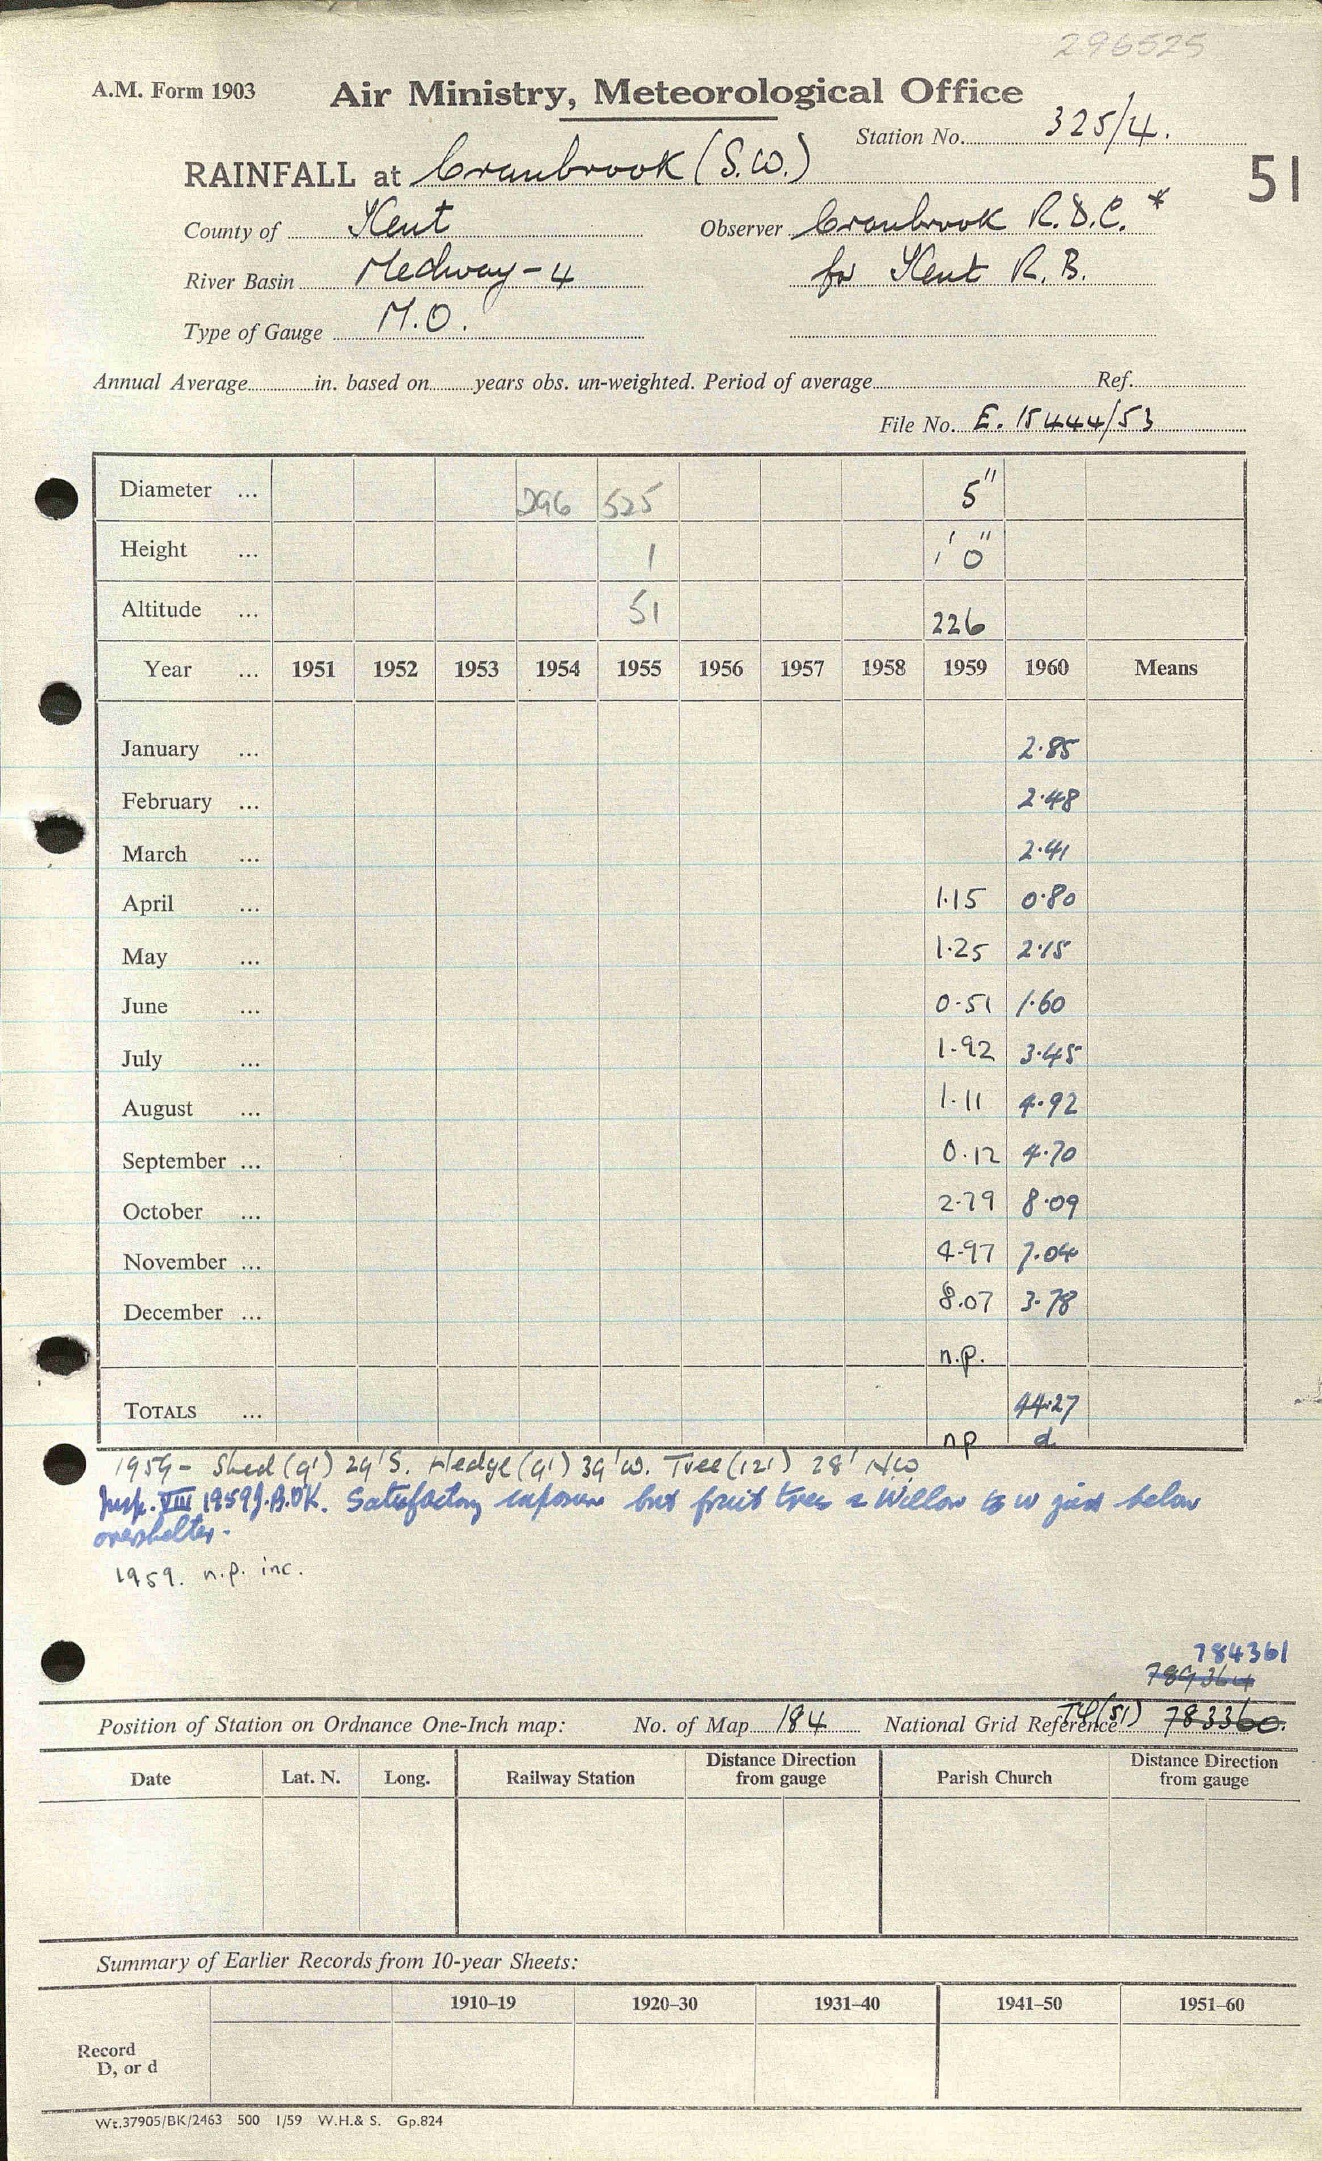 296525
A.M. Form 1903 Air Ministry, Meteorological Office
Station No. 325/4.
RAINFALL at Cranbrook (S.W.) 51
County of Kent Observer Cranbrook R.D.C.*
River Basin Medway-4 for Kent R.B.
Type of Gauge M.O.
Annual Average in. based on years obs. un-weighted. Period of average Ref.
File No. E. 15444/53
Diameter ... 296 525 5"
Height ... 1 1' 0"
Altitude ... 51 226
Year ... 1951 1952 1953 1954 1955 1956 1957 1958 1959 1960 Means
January ... 2.85
February ... 2.48
March ... 2.41
April ... 1.15 0.80
May ... 1.25 2.15
June ... 0.51 1.60
July ... 1.92 3.45
August ... 1.11 4.92
September ... 0.12 4.70
October ... 2.79 8.09
November ... 4.97 7.04
December ... 8.07 3.78
n.p.
TOTALS ... 44.27
np d
1959 - Shed (9') 29' S. Hedge (9') 39' W. Tree (12') 28' NW
Insp. VIII 1959 J.B. OK. Satisfactory exposure but fruit trees & Willow to W just below
overshelter.
1959. n.p. inc.
784361
789364
Position of Station on Ordnance One-Inch map: No. of Map 184 National Grid Reference TQ(51) 783360.
Date Lat. N. Long. Railway Station Distance Direction from gauge Parish Church Distance Direction from gauge
Summary of Earlier Records from 10-year Sheets:
1910–19 1920–30 1931–40 1941–50 1951–60
Record
D, or d
Wt.37905/BK/2463 500 1/59 W.H.& S. Gp.824